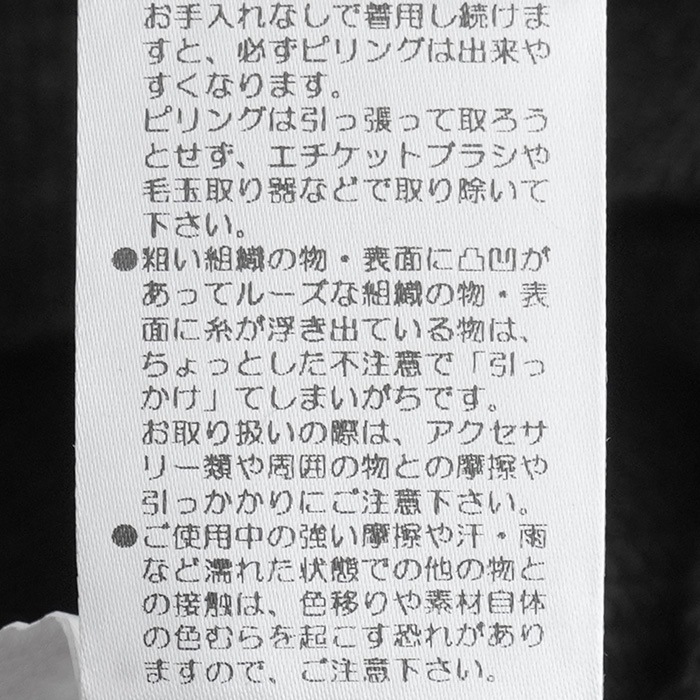 お手入れなしで着用し続けま
すと、必ずピリングは出来や
すくなります。
ピリングは引っ張って取ろう
とせず、エチケットブラシや
毛玉取り器などで取り除いて
下さい。
●粗い組織の物・表面に凸凹が
あってルーズな組織の物・表
面に糸が浮き出ている物は、
ちょっとした不注意で「引っ
かけ」てしまいがちです。
お取り扱いの際は、アクセサ
リー類や周囲の物との摩擦や
引っかかりにご注意下さい。
●ご使用中の強い摩擦や汗・雨
など濡れた状態での他の物と
の接触は、色移りや素材自体
の色むらを起こす恐れがあり
ますので、ご注意下さい。